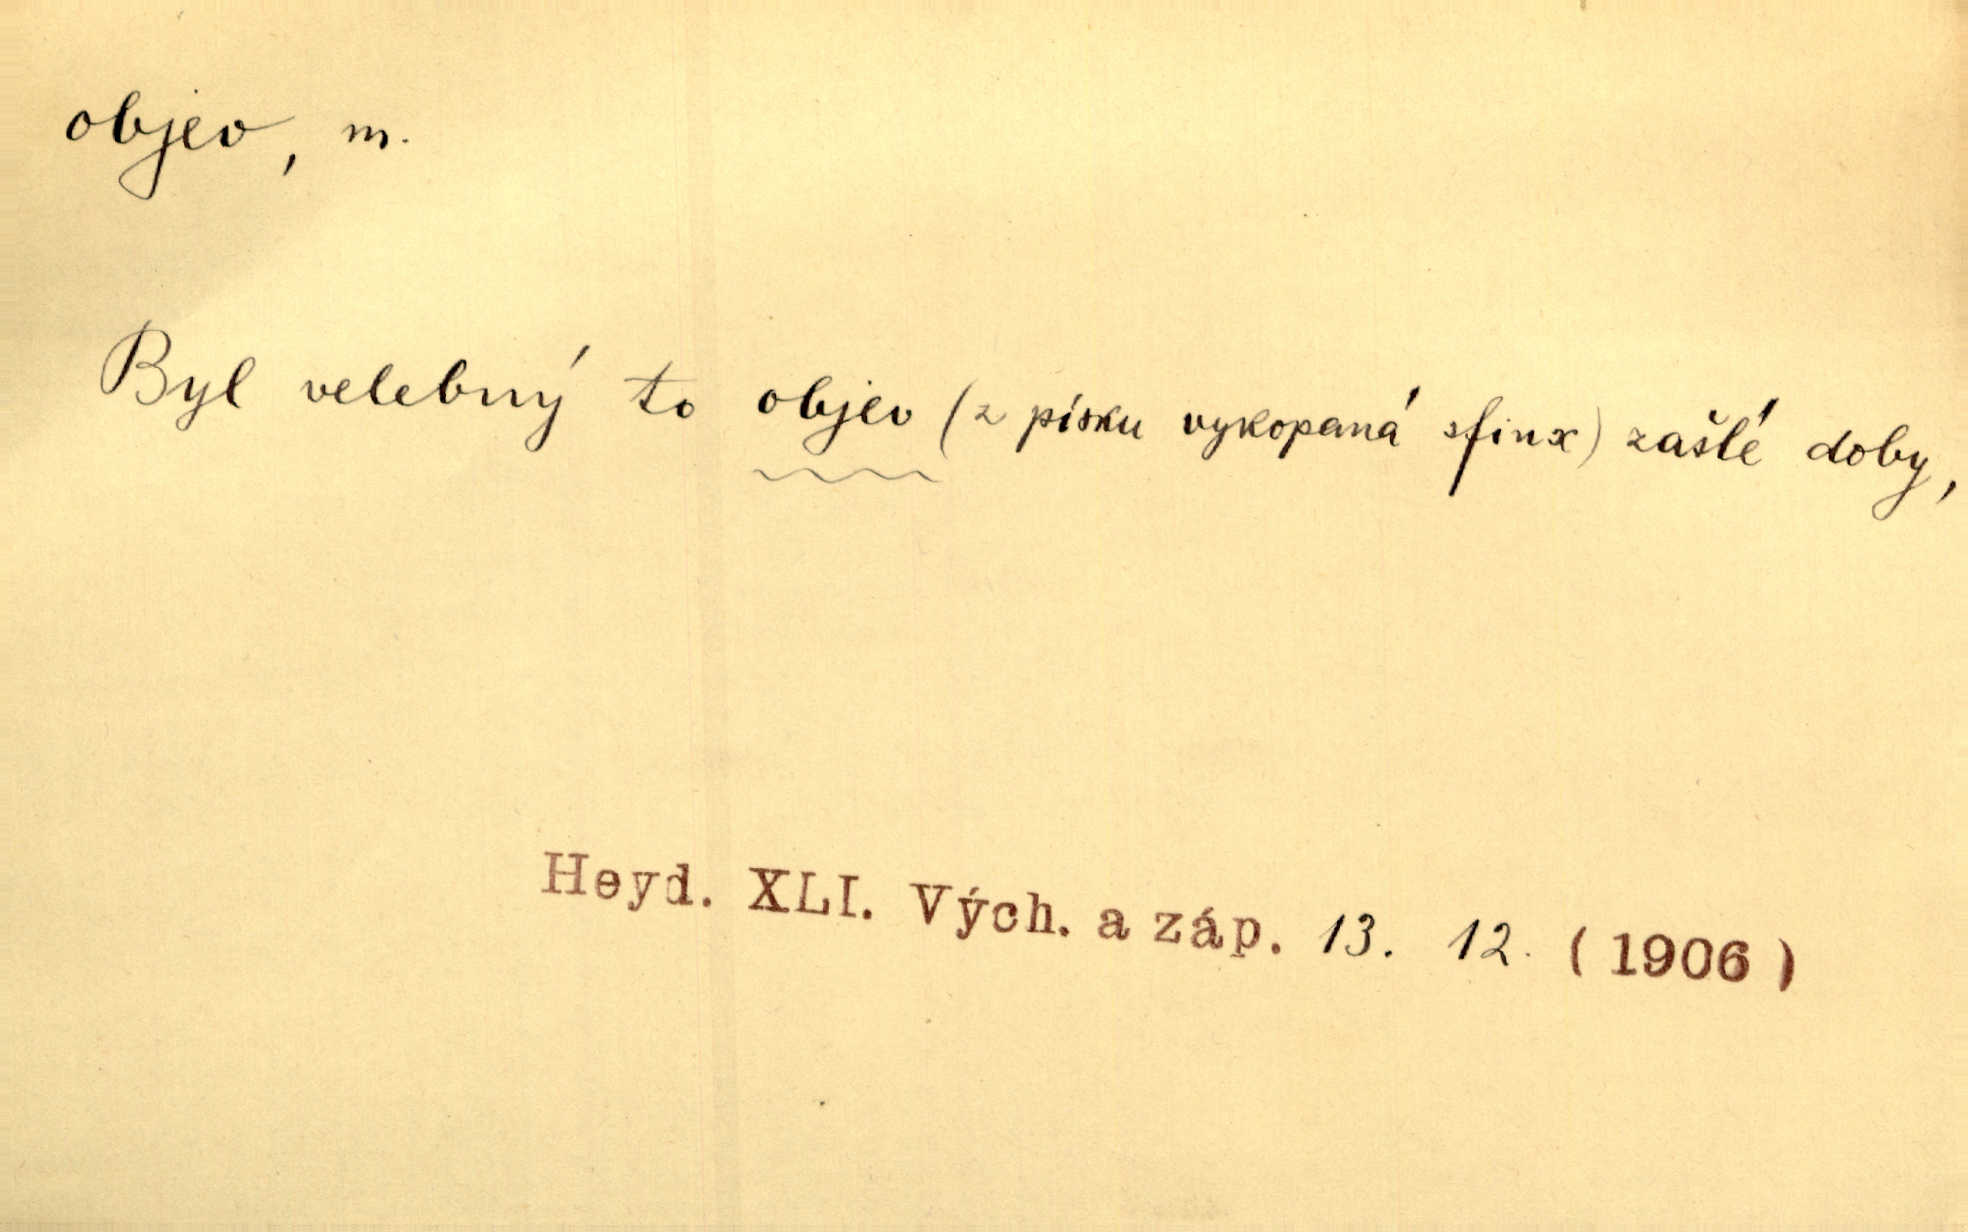 objev, m.
Byl velebný to objev (z písku vykopaná sfinx) zašlé doby,
Heyd. XLI. Vých. a záp. 13. 12. (1906)